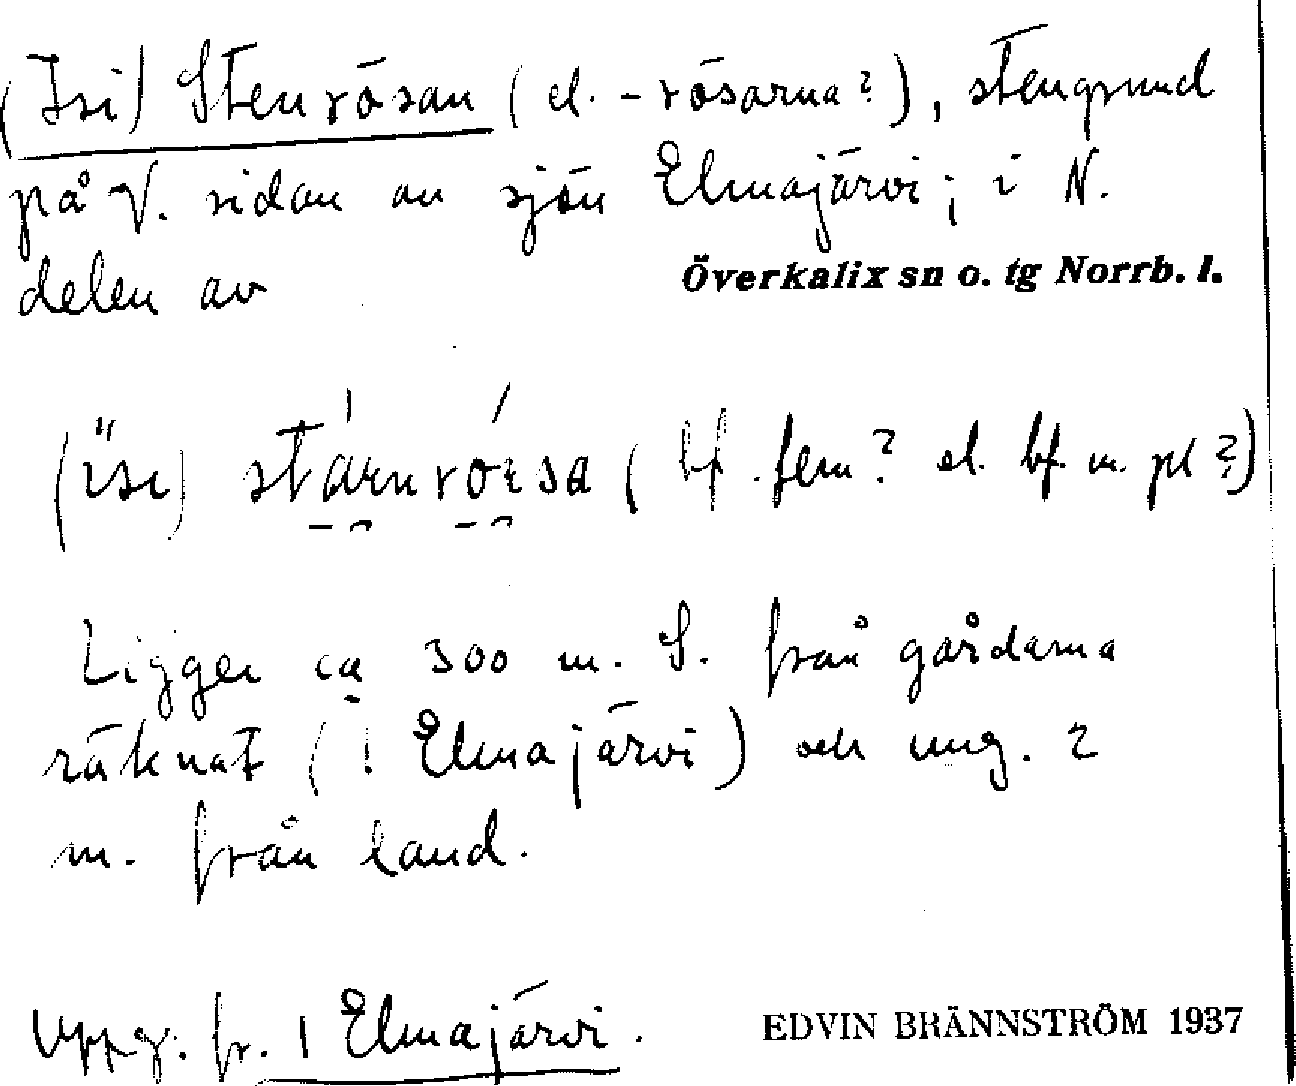 (Isi) Stenrösan (el. -rösarna?), stengrund
på V. sidan av sjön Elmajärvi; i N.
delen av Överkalix sn o. tg Norrb. l.
(ısı) (bf. fem? el. bf. m. pl?)
Ligger ca 300 m. S. från gårdarna
räknat (i Elmajärvi) och ung. 2
m. från land.
Uppg. fr. i Elmajärvi. EDVIN BRÄNNSTRÖM 1937